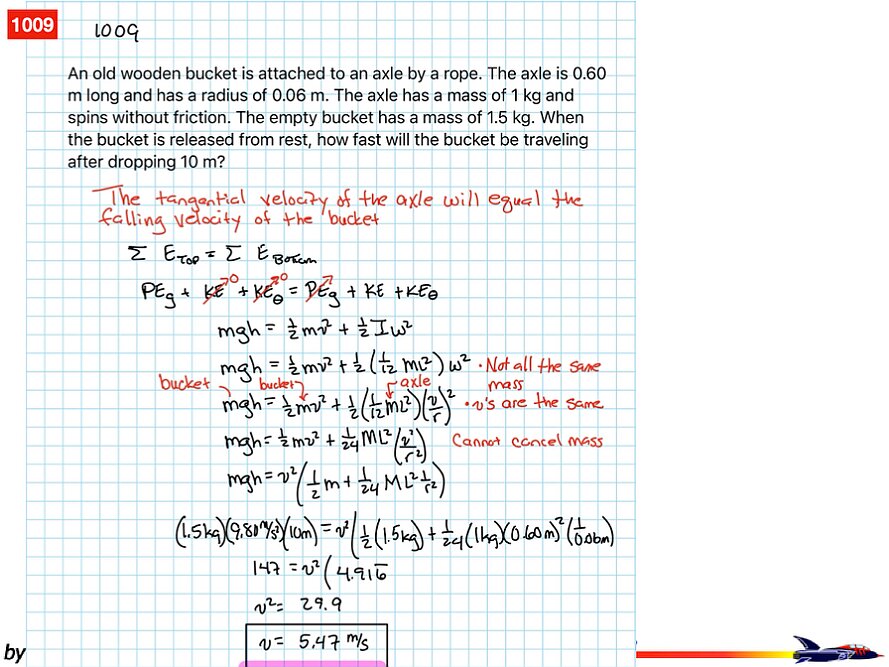 1009
1009
An old wooden bucket is attached to an axle by a rope. The axle is 0.60
m long and has a radius of 0.06 m. The axle has a mass of 1 kg and
spins without friction. The empty bucket has a mass of 1.5 kg. When
the bucket is released from rest, how fast will the bucket be traveling
after dropping 10 m?
The tangential velocity of the axle will equal the
falling velocity of the bucket
Σ E_Top = Σ E_Bottom
PEg + KE→0 + KEθ→0 = PEg + KE + KEθ
mgh = ½mv² + ½Iω²
mgh = ½mv² + ½(1/12 ML²)ω² • Not all the same
mass
bucket bucket axle
mgh = ½mv² + ½(1/12 mL²)(v/r)² • v's are the same
mgh = ½mv² + 1/24 ML²(v²/r²) Cannot cancel mass
mgh = v²(1/2 m + 1/24 ML² 1/r²)
(1.5kg)(9.80m/s²)(10m) = v²(½(1.5kg) + 1/24(1kg)(0.60m)²(1/0.06m)
147 = v²(4.916̅
v² = 29.9
v = 5.47 m/s
by